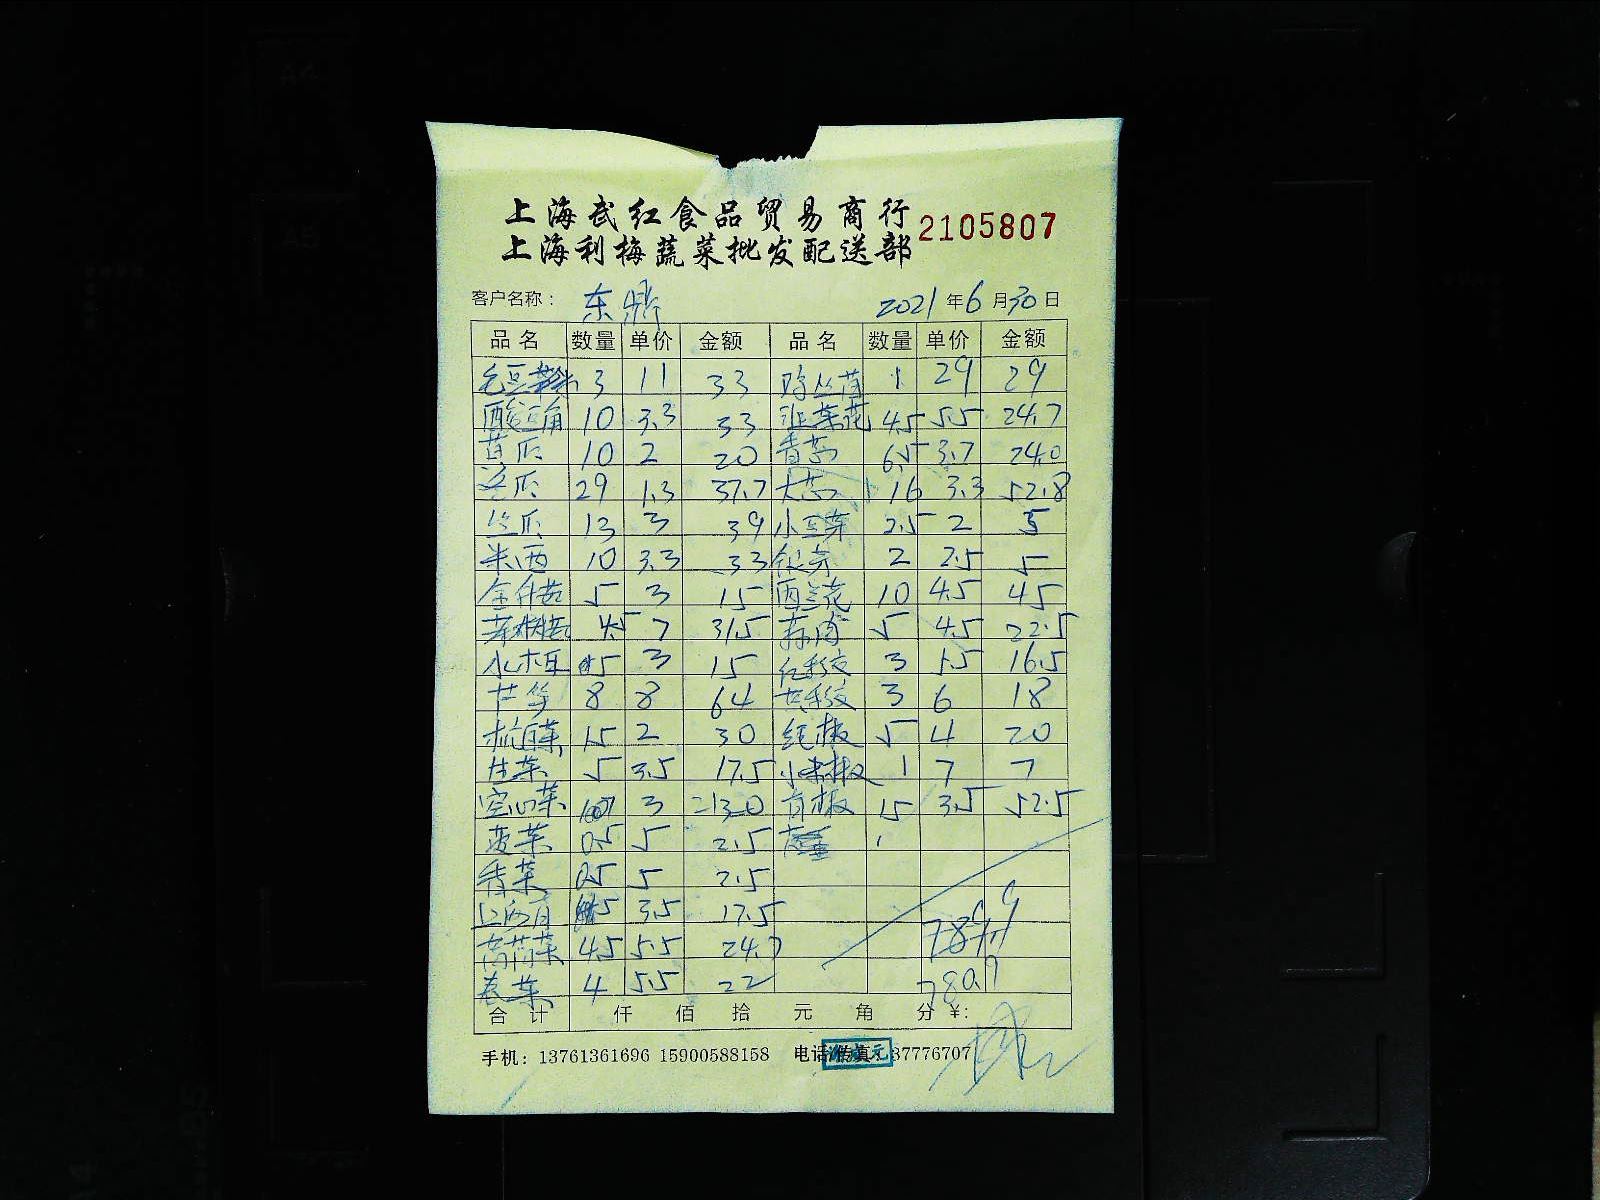 上海武红食品贸易商行
上海利梅蔬菜批发配送部 2105807
客户名称: 东鼎 2021年6月30日
品名 数量 单价 金额 品名 数量 单价 金额
毛豆 3 11 33 鸡丛菌 1 29 29
酸豆角 10 3.3 33 韭菜花 4.5 5.5 24.7
苦瓜 10 2 20 香芹 6.5 3.7 24.0
冬瓜 29 1.3 37.7 大芯 16 3.3 52.8
丝瓜 13 3 39 小豆芽 2.5 2 5
米西 10 3.3 33 银芽 2 2.5 5
金针菇 5 3 15 西兰花 10 4.5 45
4.5 7 31.5 蒜肉 5 4.5 22.5
水木耳 5 3 15 红彩椒 3 5.5 16.5
芦笋 8 8 64 黄彩椒 3 6 18
杭白菜 15 2 30 红椒 5 4 20
生菜 5 3.5 17.5 小米椒 1 7 7
空心菜 3 30 青椒 15 3.5 52.5
菠菜 0.5 5 2.5
香菜 0.5 5 2.5
上海青 5 3.5 17.5
茼蒿菜 4.5 5.5 24.7
卷菜 4 5.5 22 780.9
合计 仟 佰 拾 元 角 分 ¥:
手机: 13761361696 15900588158 电话/传真: 37776707